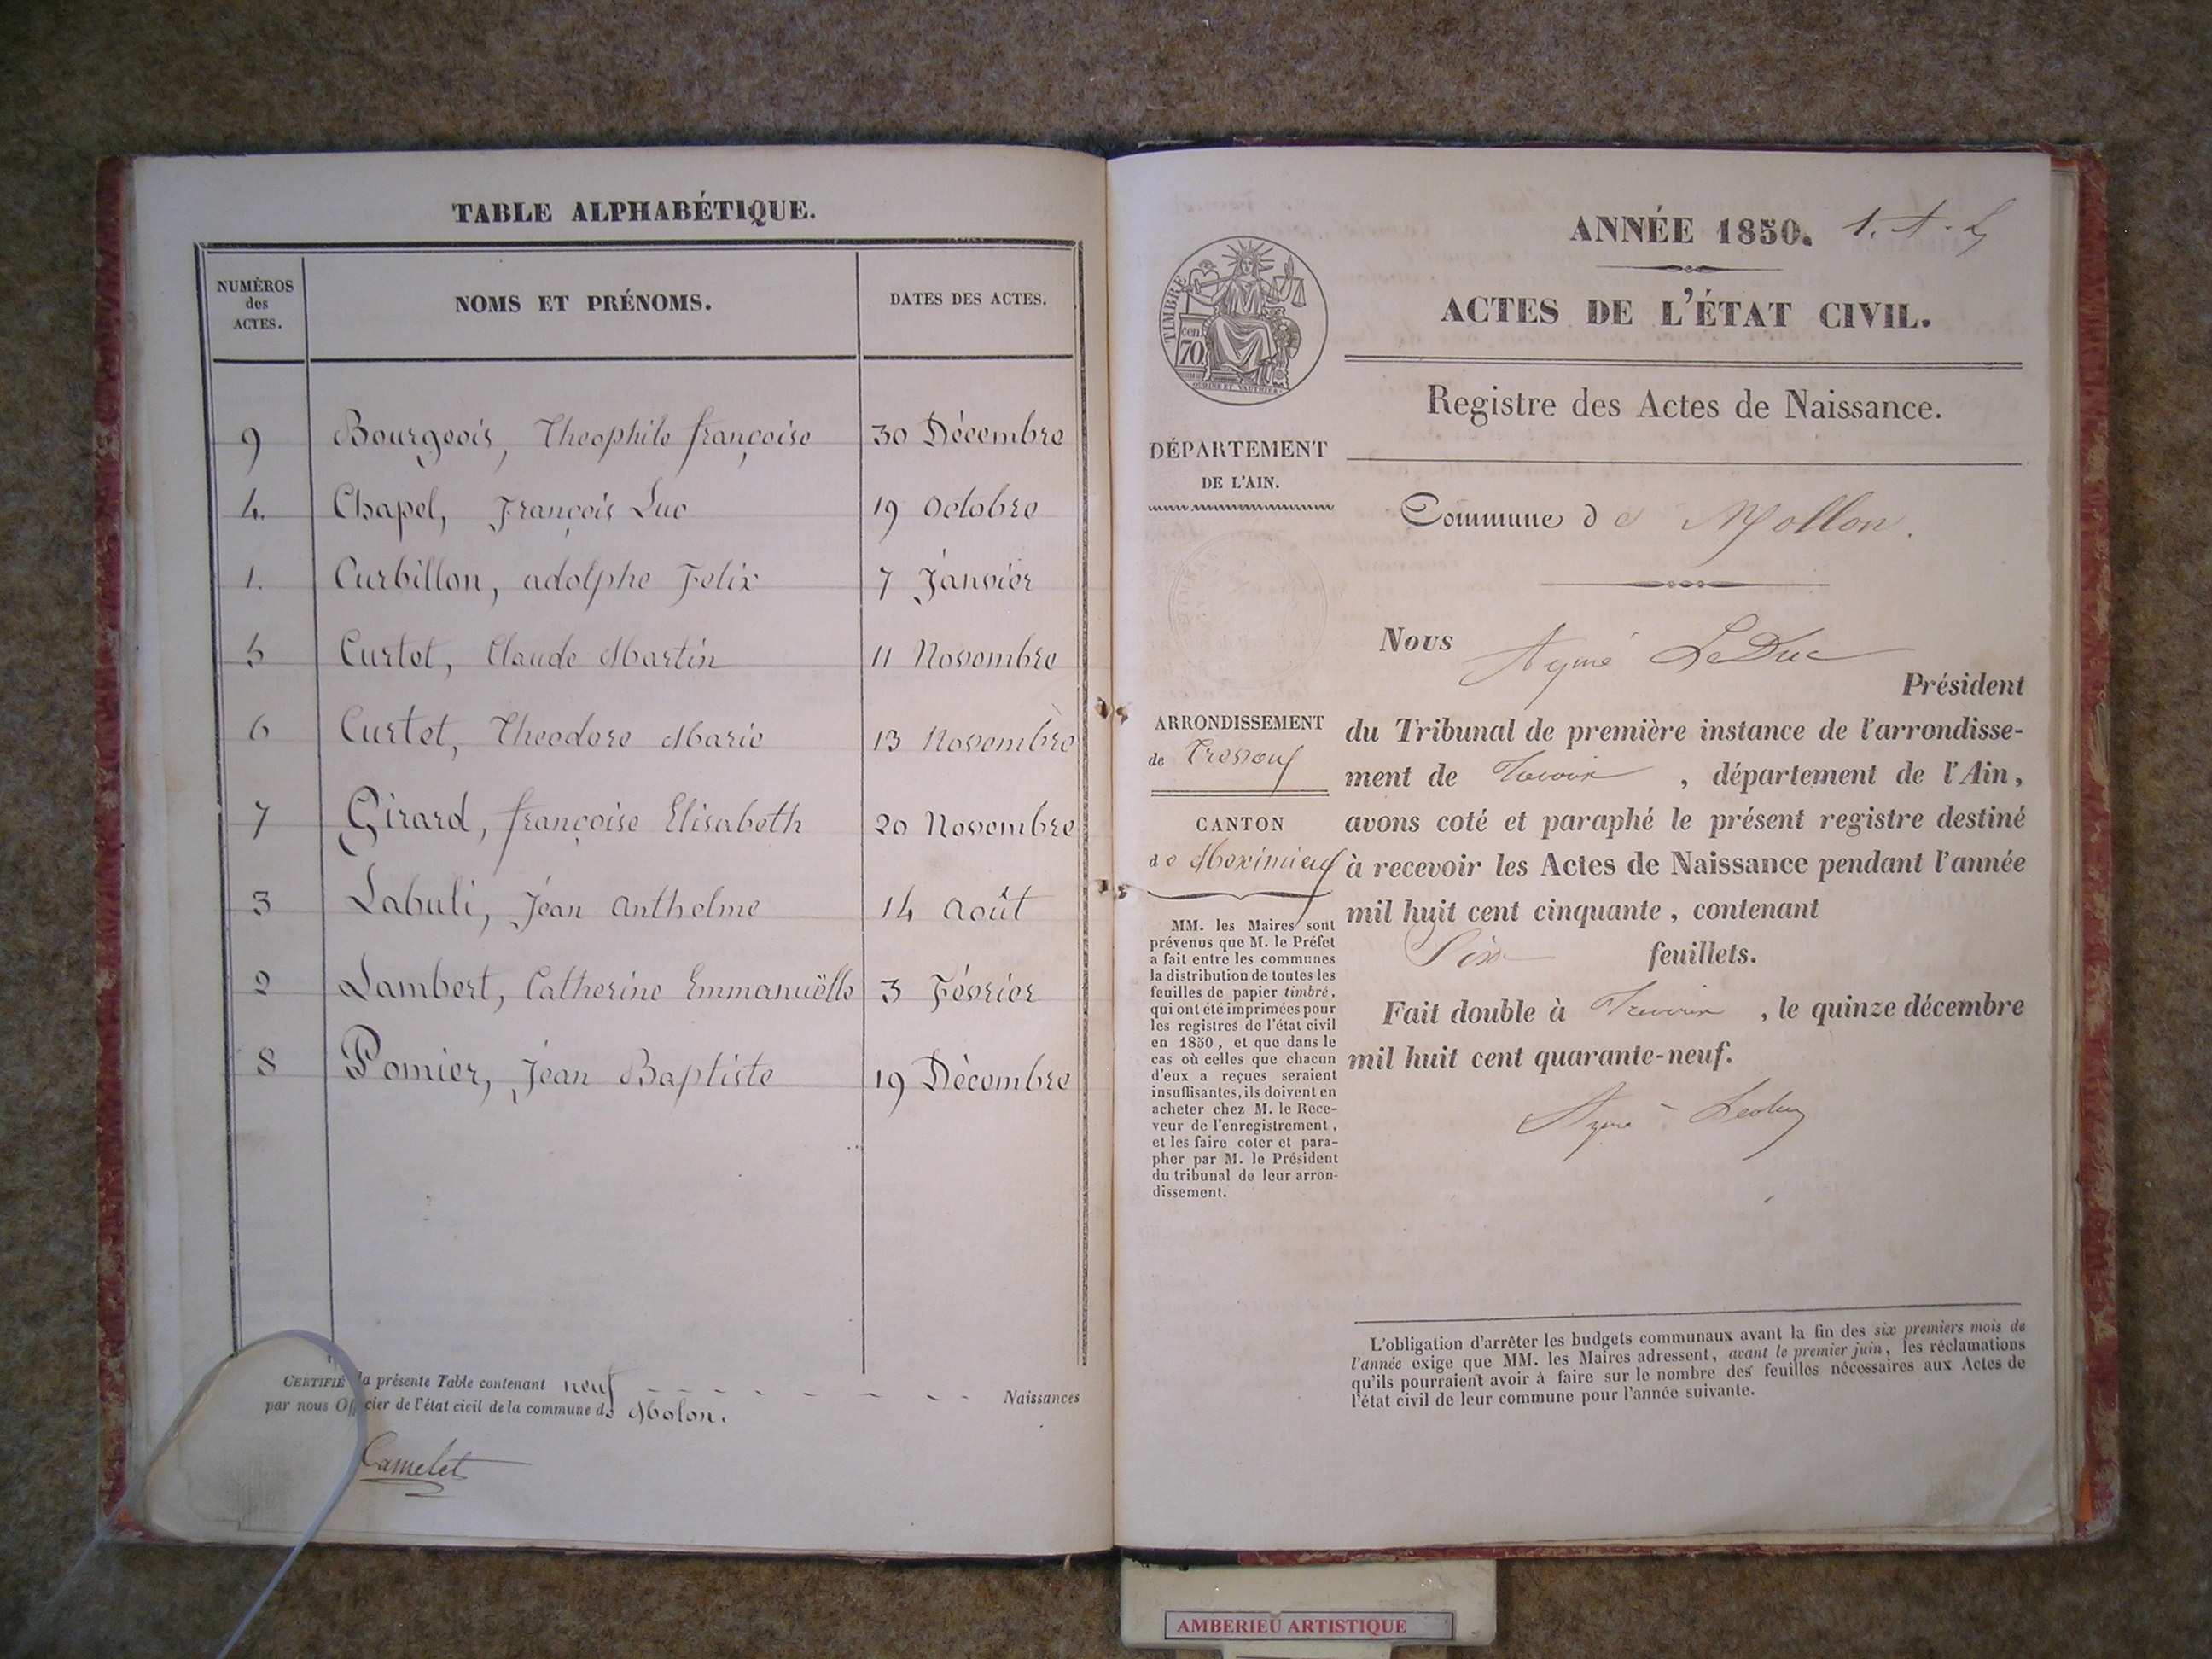 TABLE ALPHABÉTIQUE.
NUMÉROS
des
ACTES.
NOMS ET PRÉNOMS.
DATES DES ACTES.
9 Bourgeois, Theophile françoise 30 Décembre
4. Chapel, François Luc 19 Octobre
1. Curbillon, adolphe Felix 7 Janvier
5 Curtet, Claude Martin 11 Novembre
6 Curtet, Theodore Marie 13 Novembre
7 Girard, françoise Elisabeth 20 Novembre
3 Labuli, Jean Anthelme 14 Août
2 Lambert, Catherine Emmanuëlle 3 Février
8 Pomier, Jean Baptiste 19 Décembre
CERTIFIÉ la présente Table contenant neuf Naissances
par nous Officier de l'état civil de la commune de Molon.
Camelet
ANNÉE 1850. 1.
ACTES DE L'ÉTAT CIVIL.
TIMBRE
70 cen.
Registre des Actes de Naissance.
DÉPARTEMENT
DE L'AIN.
Commune de Mollon.
Nous Aymé LeDuc
Président
ARRONDISSEMENT
de Trevoux
CANTON
de Meximieux
MM. les Maires sont
prévenus que M. le Préfet
a fait entre les communes
la distribution de toutes les
feuilles de papier timbré,
qui ont été imprimées pour
les registres de l'état civil
en 1850, et que dans le
cas où celles que chacun
d'eux a reçues seraient
insuffisantes, ils doivent en
acheter chez M. le Rece-
veur de l'enregistrement,
et les faire coter et para-
pher par M. le Président
du tribunal de leur arron-
dissement.
du Tribunal de première instance de l'arrondisse-
ment de Trevoux, département de l'Ain,
avons coté et paraphé le présent registre destiné
à recevoir les Actes de Naissance pendant l'année
mil huit cent cinquante, contenant
Six feuillets.
Fait double à Trevoux, le quinze décembre
mil huit cent quarante-neuf.
Aymé-Leduc
L'obligation d'arrêter les budgets communaux avant la fin des six premiers mois de
l'année exige que MM. les Maires adressent, avant le premier juin, les réclamations
qu'ils pourraient avoir à faire sur le nombre des feuilles nécessaires aux Actes de
l'état civil de leur commune pour l'année suivante.
AMBERIEU ARTISTIQUE